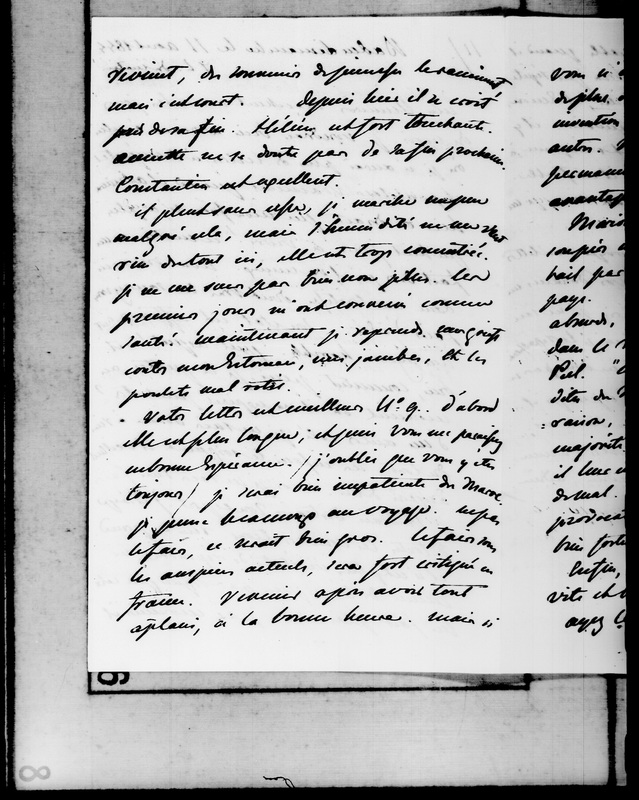 vivement, des souvenirs de jeunesse le raniment
mais c'est court. depuis hier il se croit
près de sa fin. Hélène est fort touchante.
annette ne se doute pas de sa fin prochaine.
Constantin est excellent.
il pleut sans cesse, je marche un peu
malgré cela, mais l'humidité ne me vaut
rien du tout ici, elle est trop concentrée.
je ne me sens pas bien non plus. les
premiers jours m'ont convenu comme
santé. maintenant je reprends
contre mon Estomac, mes jambes, et les
mal
Votre lettre est meilleure N° 9. d'abord
elle est plus longue; et puis vous me paraissez
en bonne Espérance. / j'oublie que vous y êtes
toujours / je serai bien impatiente du Maroc
je pense beaucoup au voyage. ne pas
le faire, ce serait bien gros. le faire sous
les auspices actuels, sera fort critiqué en
france. revenir après avoir tout
aplani, à la bonne heure. mais si
vous n'
de plus
invention
autres
permanen
avantag
Mario
soupçon
trait par
pays.
absurde,
dans le
Peel. "
dites du
raison,
majorité
il
de mal.
provocat
bien forte
Enfin,
vite et
ayez la
8